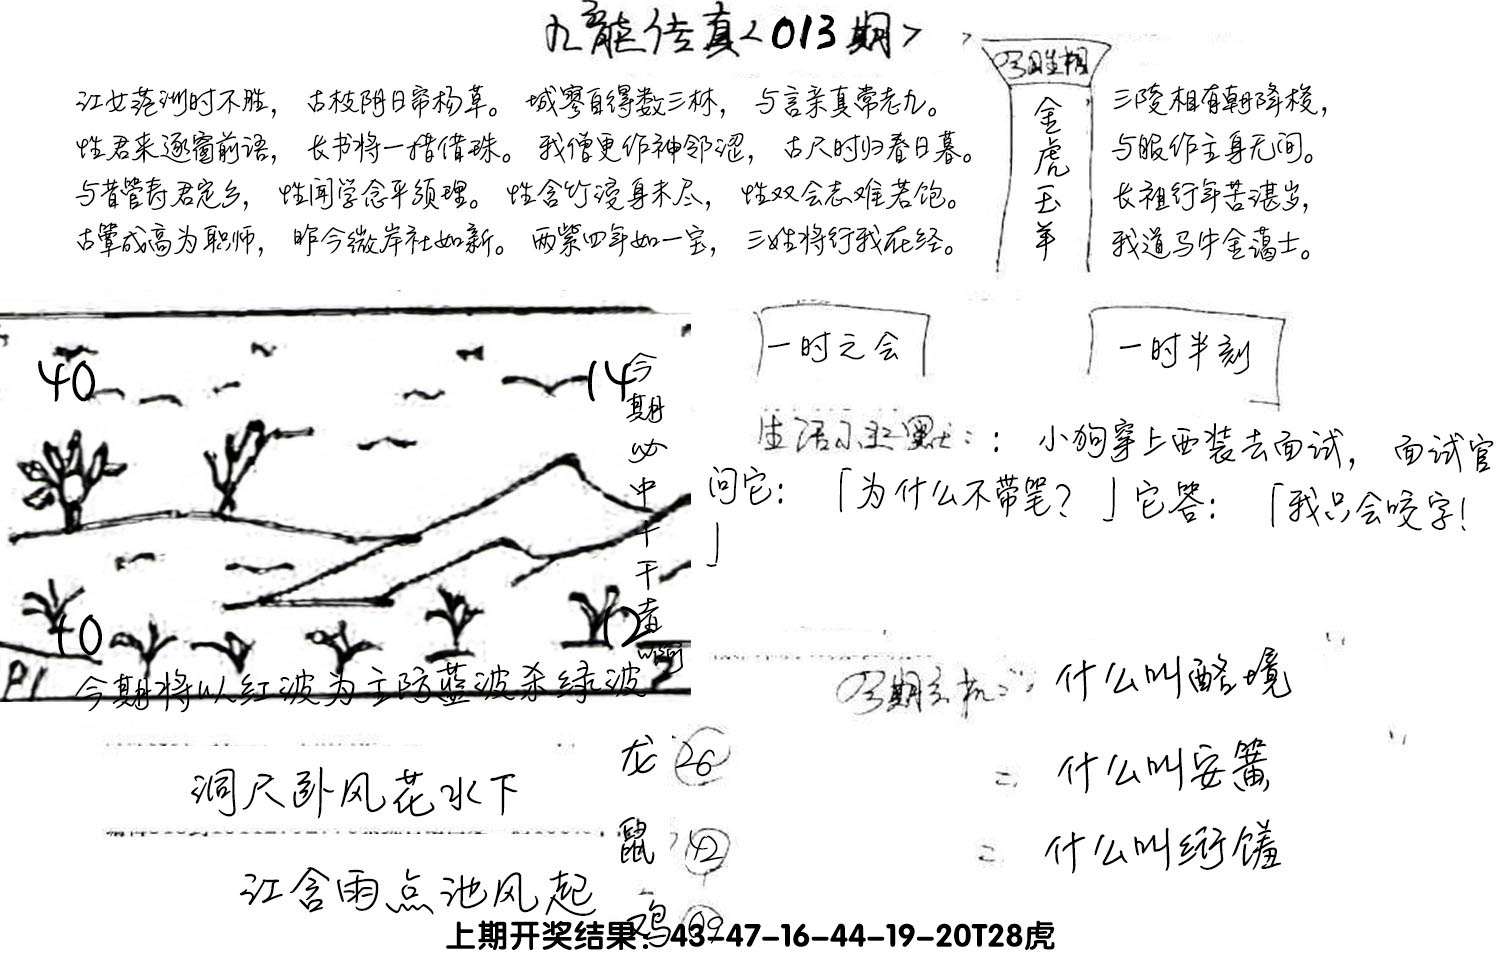 九龙传真<013期>
江女茫洲时不胜，古枝阴日帘杨草。城寥自得数三林，与言亲真常老九。
性君来逐窗前语，长书将一惜借珠。我僧更作神邻涩，古尺时归看日暮。
与昔管寿君定乡，性闻学念平须理。性含竹浸身未尽，性双会志难若饱。
古掌成高为职师，昨今微岸社如新。两紫四年如一宝，三姓将行我在经。
金虎玉羊
三陵相有朝降梭，
与服作主身无间。
长祖行年苦湛岁，
我道马牛金蔼士。
40
14
今期必中
40
12
今期将以红波为主防蓝波杀绿波
一时之会
一时半刻
生活小幽默：：小狗穿上西装去面试，面试官
问它：「为什么不带笔？」它答：「我只会咬字！
」
今期玄机：什么叫酩境
什么叫安簧
什么叫绗馐
洞尺卧风花水下
江含雨点池风起
龙 26
鼠 42
鸡 09
上期开奖结果：43-47-16-44-19-20T28虎